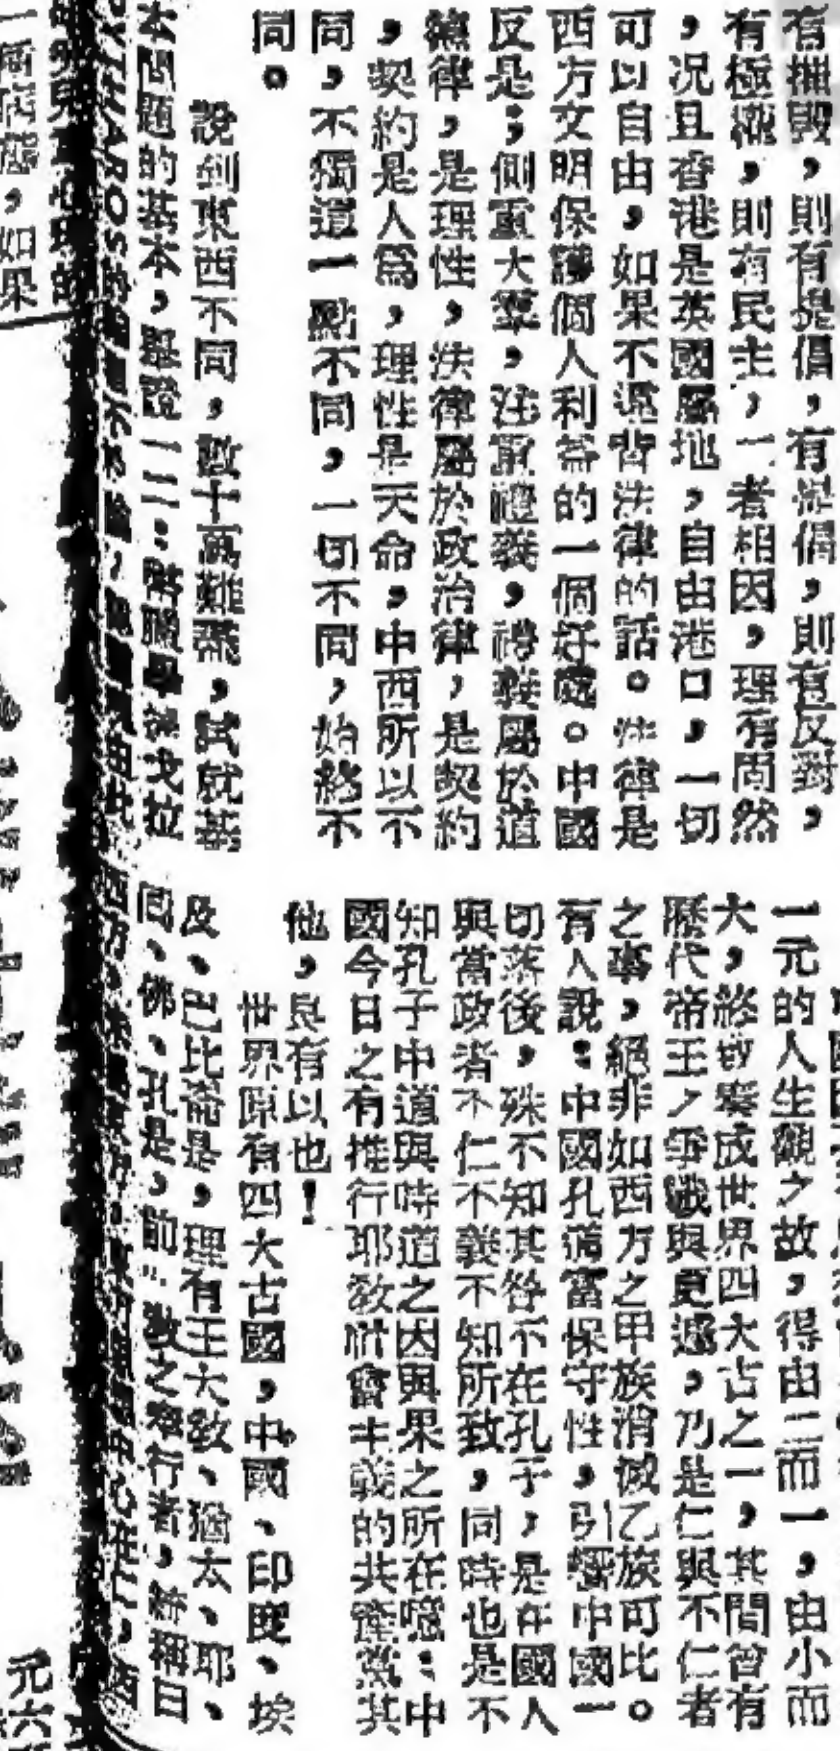 有摧毀，則有提倡，有提倡，則有反對，
有極權，則有民主，二者相因，理有固然
，況且香港是英國屬地，自由港口，一切
可以自由，如果不違背法律的話。法律是
西方文明保護個人利益的一個好處。中國
反是；側重大羣，注重禮義，禮義屬於道
德律，是理性，法律屬於政治律，是契約
，契約是人爲，理性是天命，中西所以不
同，不獨這一點不同，一切不同，始終不
同。
說到東西不同，數十萬難罄，試就基
本問題的基本，舉證一二：希臘學者戈拉
一元的人生觀之故，得由二而一，由小而
大，終能變成世界四大古之一，其間曾有
歷代帝王之爭戰與更遞，乃是仁與不仁者
之事，絕非如西方之甲族消滅乙族可比。
有人說：中國孔道富保守性，引響中國一
切落後，殊不知其咎不在孔子，是在國人
與當政者不仁不義不知所致，同時也是不
知孔子中道與時道之因與果之所在噫：中
國今日之有推行耶教社會主義的共產黨其
他，良有以也！
世界原有四大古國，中國、印度、埃
及、巴比崙是，理有五大教、猶太、耶、
回、佛、孔是，前二教之奉行者，統稱曰
西方，
元六